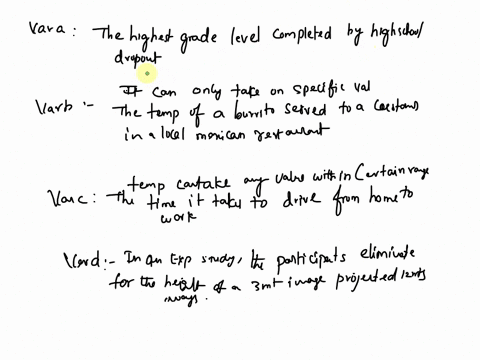 Vara: The highest grade level completed by highschool
dropout
It can only take on specific val
Varb:- The temp of a burrito served to a
in a local mexican restaurant
temp cantake any value within Certain range
Varc: The time it takes to drive from home to
work
Vard:- In an Exp study, the participats eliminate
for the height of a 3mt image projected